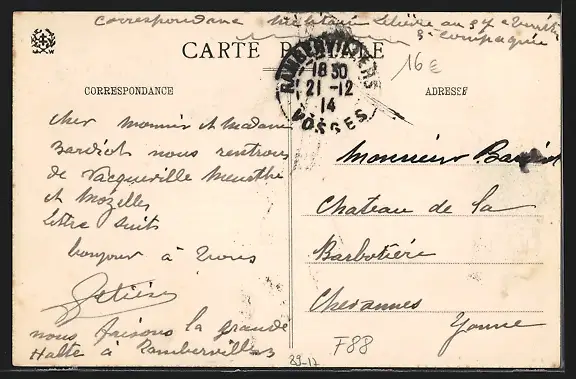 Correspondance Militaire
8e Compagnie
CARTE POSTALE
16€
RAMBERVILLERS
18 30
21 - 12
14
VOSGES
CORRESPONDANCE
Cher Monsieur et Madame
nous rentrons
de Vacqueville Meurthe
et Mozelle
Lettre suit
bonjour à Tous
nous faisons la grande
Halte à Rambervillers
ADRESSE
Monsieur
Chateau de la
Barbotiére
Chevannes
Yonne
F88